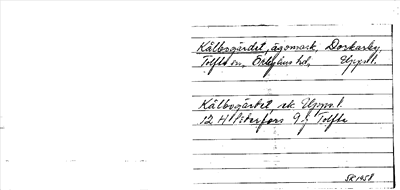 Kålbogärdet, ägomark, Dorkarby,
Tolfta sn, Örbyhus hd, Uppl.
Kålbogärdet ek Uppl.
12 H Söderfors 9 j Tolfta
SR 1958